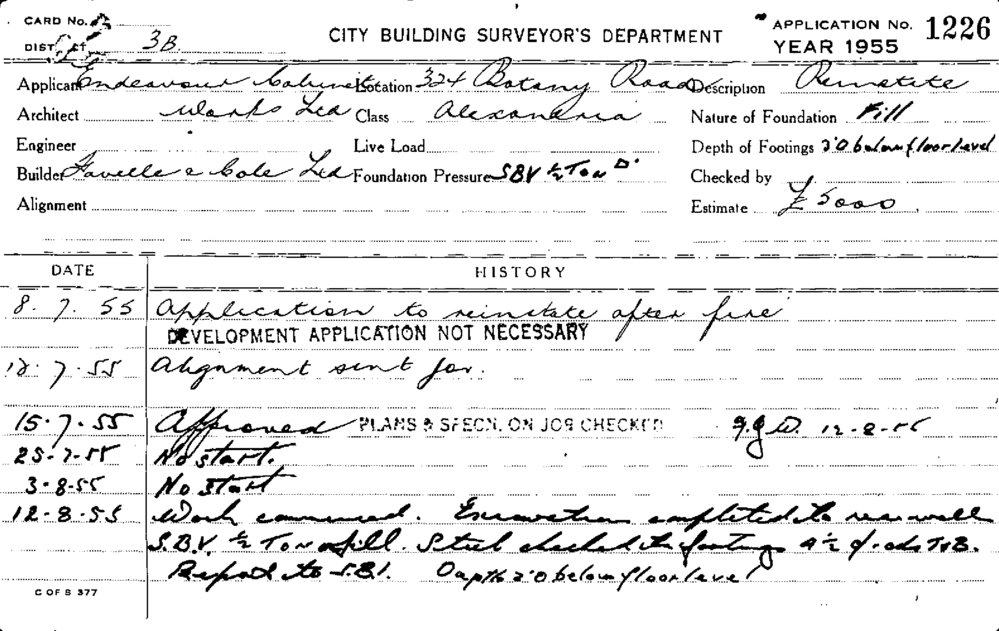 CARD No. APPLICATION No. 1226
DISTRICT 3B. CITY BUILDING SURVEYOR'S DEPARTMENT YEAR 1955
Applicant Endeavour Cabinet Location 324 Botany Road Description Reinstate
Architect Works Ltd Class Alexandria Nature of Foundation Fill
Engineer Live Load Depth of Footings 2'0 below floor level
Builder Favelle & Cole Ltd Foundation Pressure SBV ½ Ton □'
Checked by
Alignment Estimate £5000
DATE HISTORY
8. 7. 55 Application to reinstate after fire
DEVELOPMENT APPLICATION NOT NECESSARY
12. 7. 55 Alignment sent for.
15. 7. 55 Approved PLANS & SPECN. ON JOB CHECKED 12-8-55
25-7-55 No start.
3-8-55 No start
12-8-55 Work commenced. Excavation completed to rear wall
S.B.V. ½ Ton fill. Steel checked to footings 4½ T&B.
Report to S.B.I. Depth 2'0 below floor level
C OF S 377